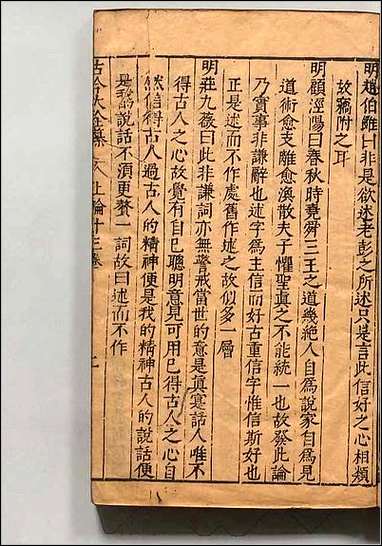 明趙伯雖曰非是欲述老彭之所述只是言此信好之心相類
故竊附之耳
明顧涇陽曰春秋時堯舜三王之道幾絕人自為說家自為見
道術愈支離愈渙散夫子懼聖真之不能統一也故發此論
乃實事非謙辭也述字為主信而好古重信字惟信斯好也
正是述而不作處舊作述之故似多一層
明莊九薇曰此非謙詞亦無警戒當世的意是真實話人唯不
得古人之心故覺有自己聰明意見可用已得古人之心自
然信得古人過古人的精神便是我的精神古人的說話便
是我的說話不須更贅一詞故曰述而不作
古今大全纂 上論廿三卷